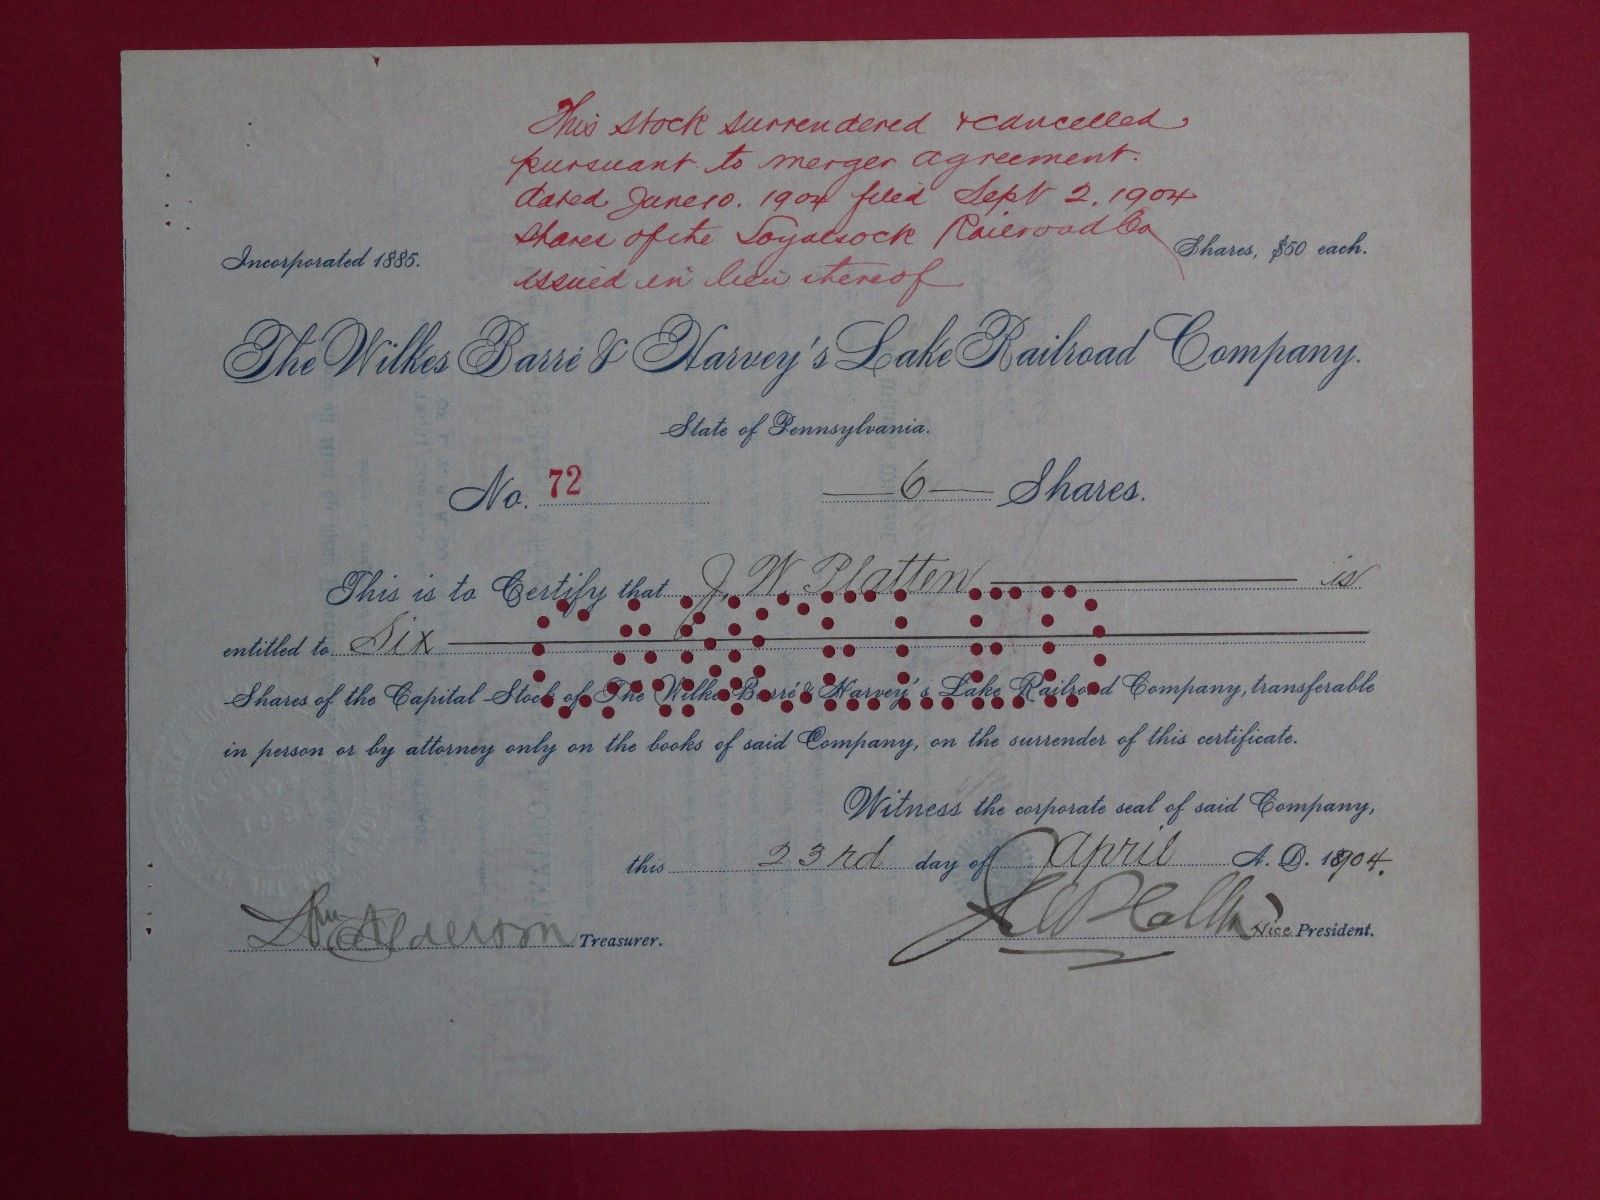 This stock surrendered & cancelled
pursuant to merger agreement.
dated June 10. 1904 filed Sept 2. 1904
Shares of the Loyalsock Railroad Co
issued in lieu thereof
Incorporated 1885.
Shares, $50 each.
The Wilkes Barré & Harvey's Lake Railroad Company.
State of Pennsylvania.
No. 72 6 Shares.
This is to Certify that J. W. Platten is
entitled to Six
CANCELLED
Shares of the Capital Stock of The Wilkes Barré & Harvey's Lake Railroad Company, transferable
in person or by attorney only on the books of said Company, on the surrender of this certificate.
Witness the corporate seal of said Company,
this 23rd day of April A. D. 1904.
Alderson Treasurer.
J W Platten Vice President.